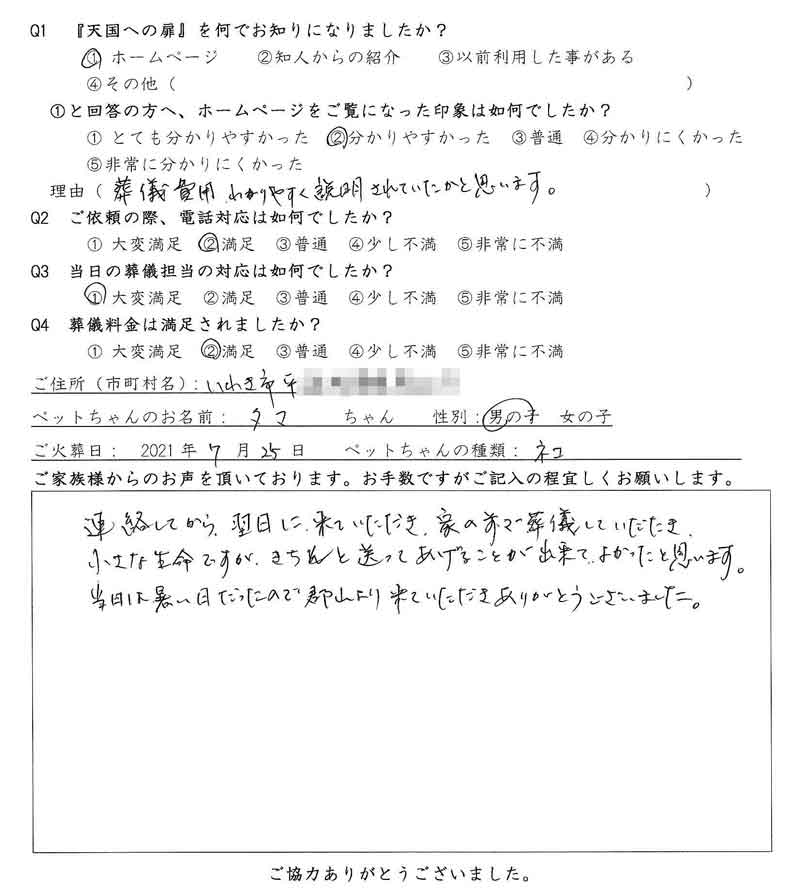 Q1 『天国への扉』を何でお知りになりましたか？
① ホームページ ②知人からの紹介 ③以前利用した事がある
④その他（ ）
①と回答の方へ、ホームページをご覧になった印象は如何でしたか？
① とても分かりやすかった ②分かりやすかった ③普通 ④分かりにくかった
⑤非常に分かりにくかった
理由（ 葬儀費用、わかりやすく説明されていたかと思います。 ）
Q2 ご依頼の際、電話対応は如何でしたか？
① 大変満足 ②満足 ③普通 ④少し不満 ⑤非常に不満
Q3 当日の葬儀担当の対応は如何でしたか？
① 大変満足 ②満足 ③普通 ④少し不満 ⑤非常に不満
Q4 葬儀料金は満足されましたか？
① 大変満足 ②満足 ③普通 ④少し不満 ⑤非常に不満
ご住所（市町村名）：いわき市平
ペットちゃんのお名前： タマ ちゃん 性別：男の子 女の子
ご火葬日： 2021年 7 月 25 日 ペットちゃんの種類：ネコ
ご家族様からのお声を頂いております。お手数ですがご記入の程宜しくお願いします。
連絡してから、翌日に、来ていただき、家の前で葬儀していただき、
小さな生命ですが、きちんと送ってあげることが出来て、よかったと思います。
当日は暑い日だったので郡山より来ていただきありがとうございました。
ご協力ありがとうございました。